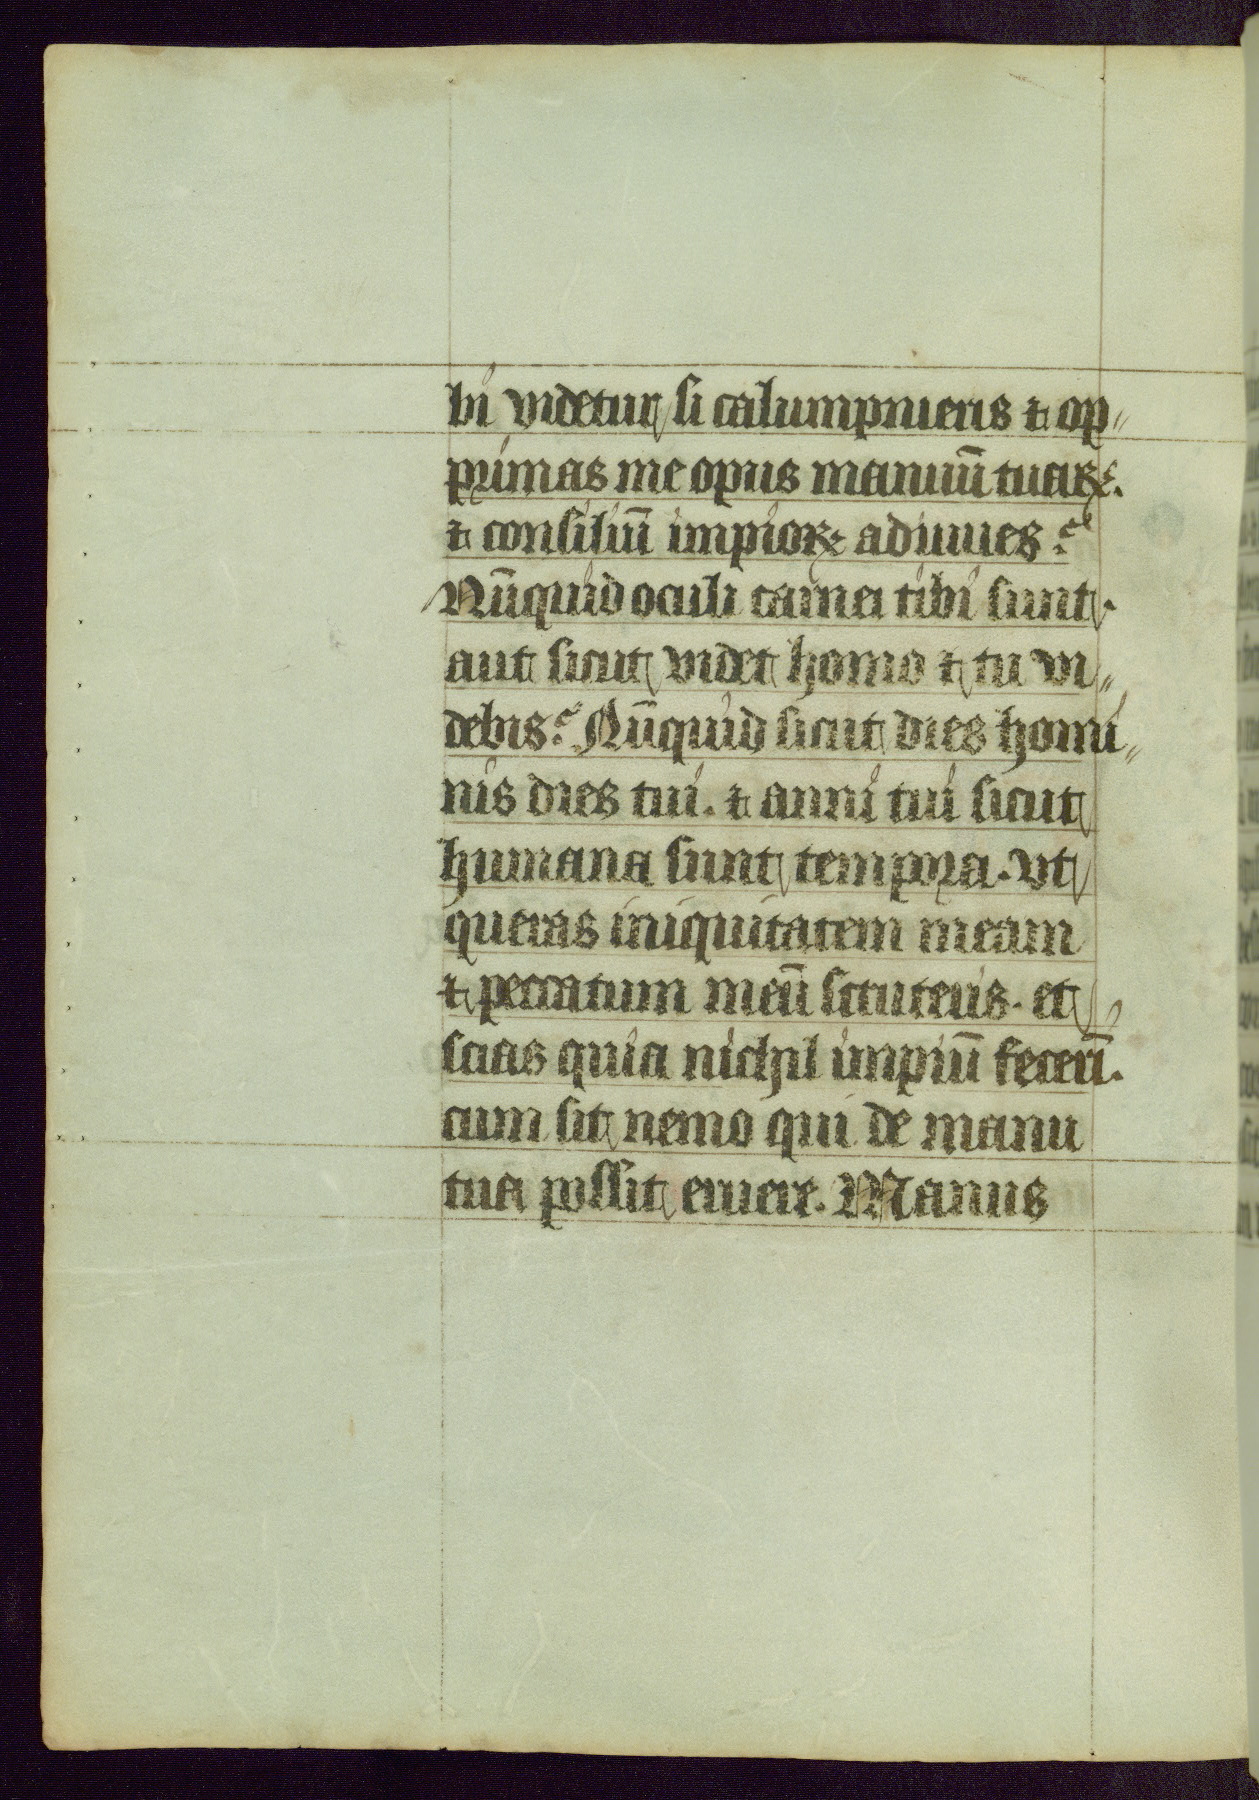 bi videtur si calumpnieris ⁊ op〃
primas me opus manuū tuaꝝ.
⁊ consiliū impioꝝ adiuues?
Nūquid oculi carnei tibi sunt.
aut sicut videt homo ⁊ tu vi〃
debis? Nūquid sicut dies homi〃
nis dies tui. ⁊ anni tui sicut
humana sunt tempora. vt
queras iniquitatem meam
⁊ peccatum meū scruteris. et
scias quia nichil impiū fecerī.
cum sit nemo qui de manu
tua possit eruere. Manus